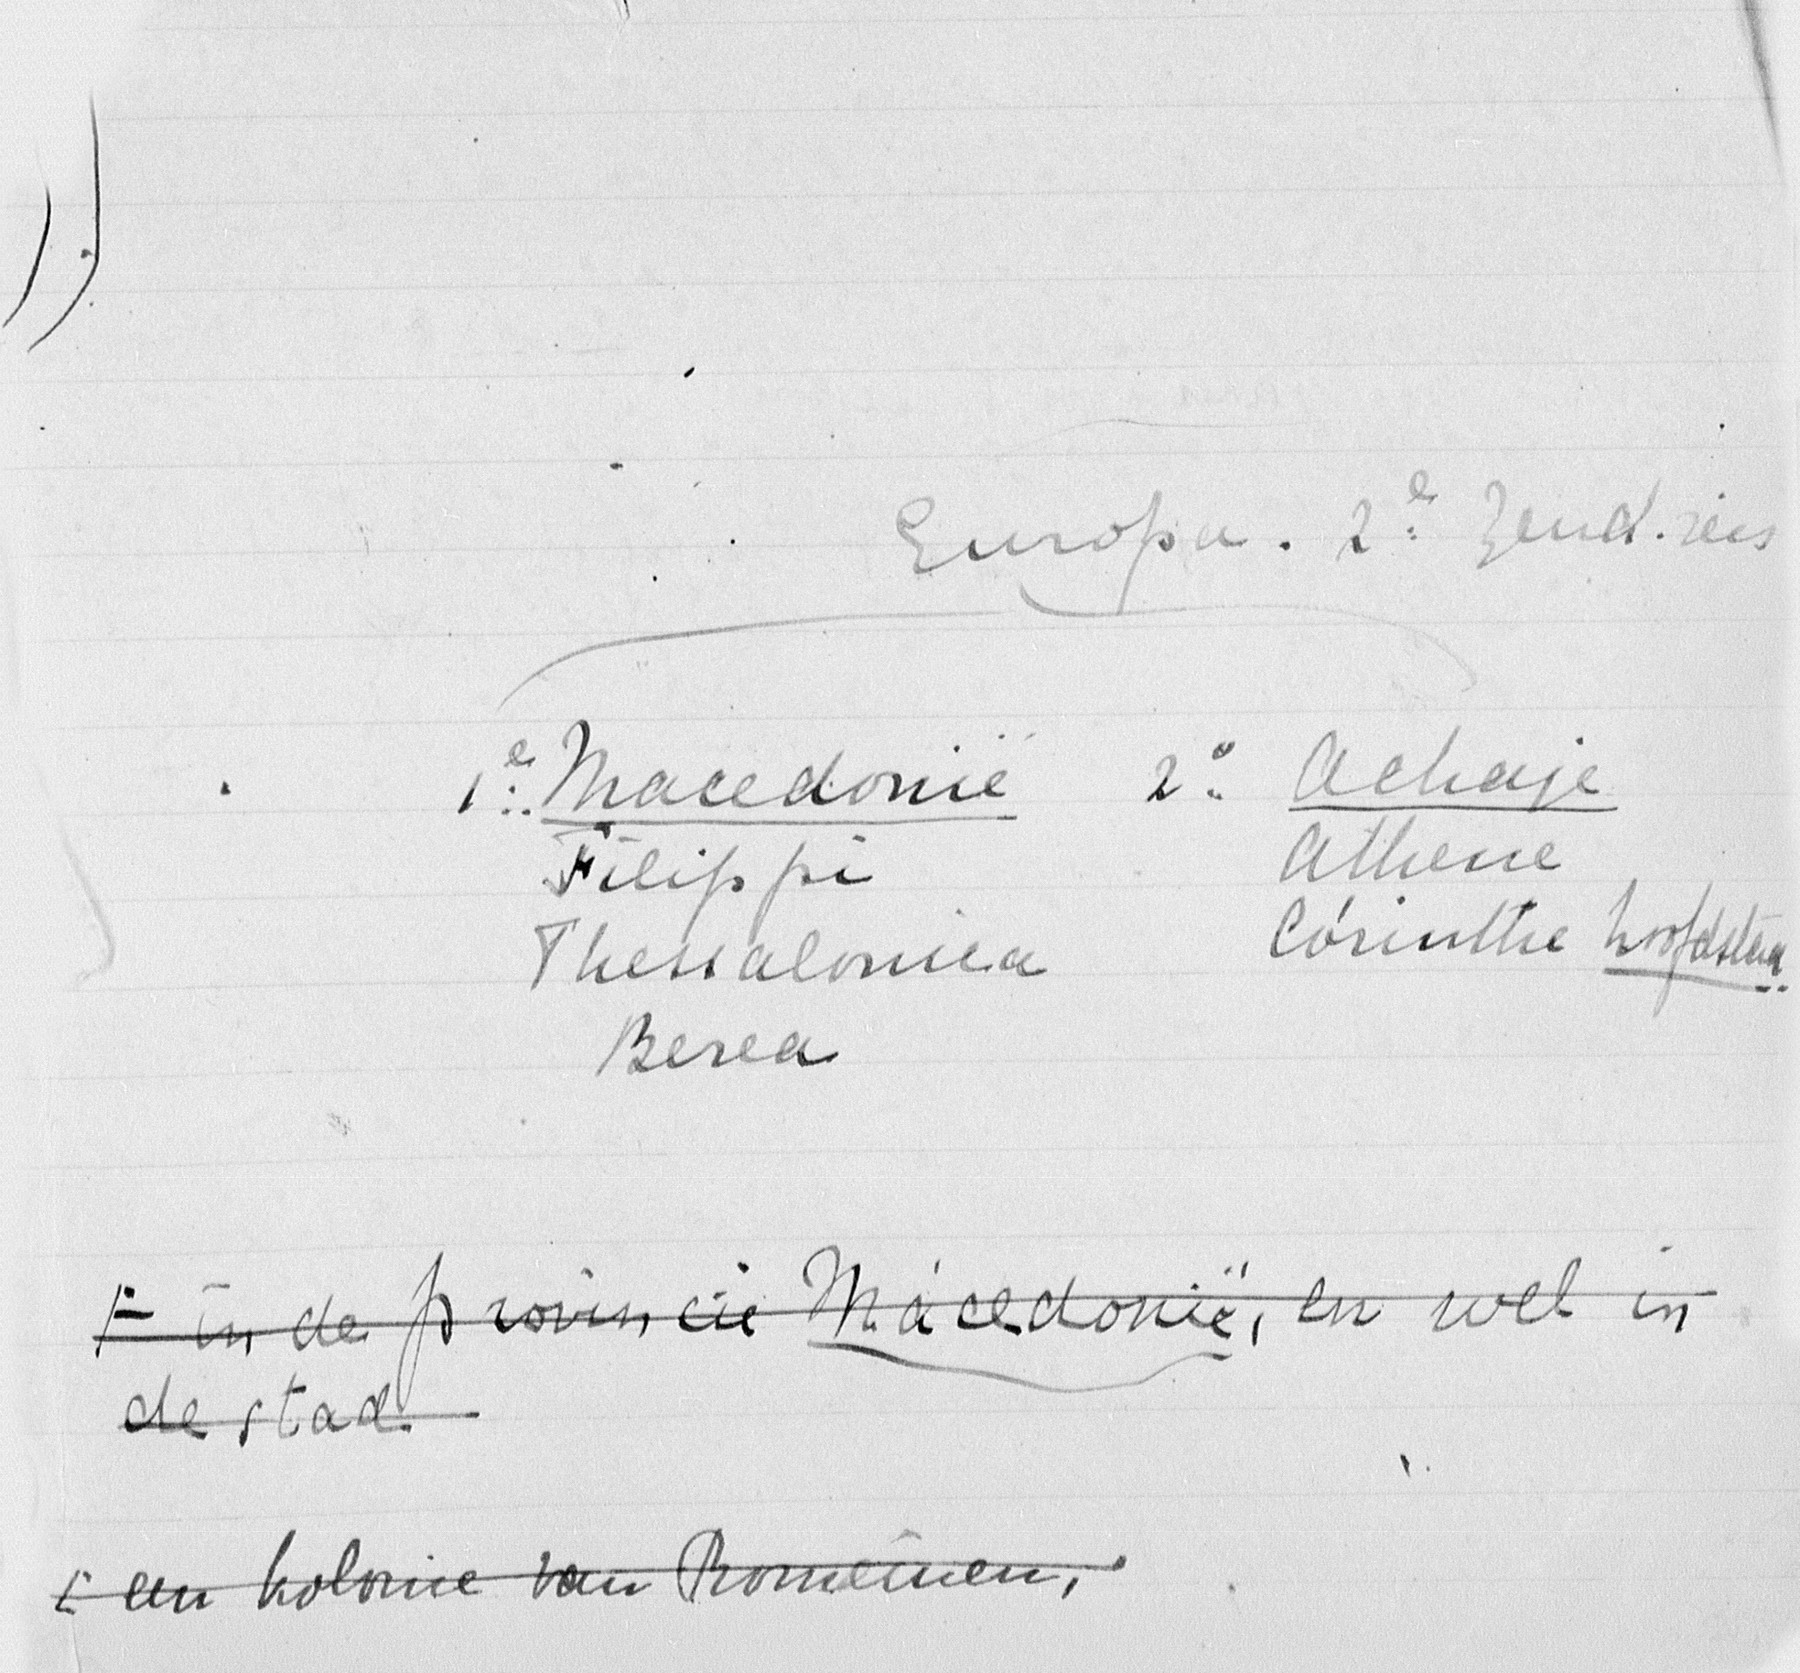 Europa. 2e Zend. reis
1e Macedonië 2o Achaje
Filippi Athene
Thessalonica Corinthe hoofdstad
Berea
in de provincie Macedonië, en wel in
de stad.
een kolonie van Romeinen,